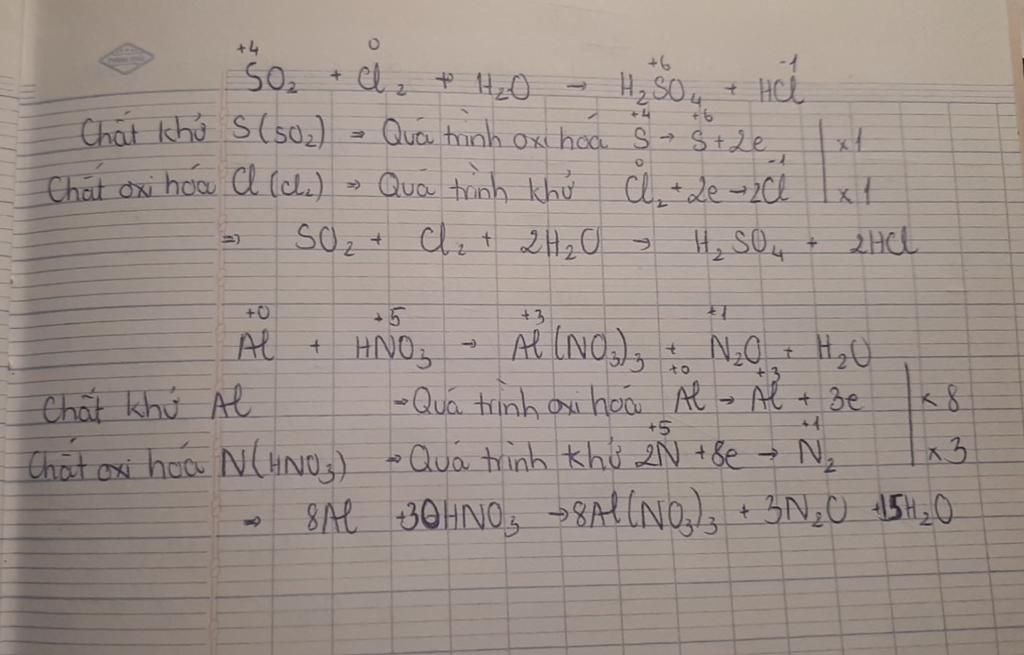 +4 0 +6 -1
SO₂ + Cl₂ + H₂O → H₂SO₄ + HCl
+4 +6
Chất khử S(SO₂) ⇒ Quá trình oxi hóa S → S + 2e | x1
0 -1
Chất oxi hóa Cl (Cl₂) ⇒ Quá trình khử Cl₂ + 2e → 2Cl | x1
⇒ SO₂ + Cl₂ + 2H₂O → H₂SO₄ + 2HCl
+0 +5 +3 +1
Al + HNO₃ → Al(NO₃)₃ + N₂O + H₂O
+0 +3
Chất khử Al → Quá trình oxi hóa Al → Al + 3e | x 8
+5 +1
Chất oxi hóa N(HNO₃) → Quá trình khử 2N + 8e → N₂ | x3
⇒ 8Al + 30HNO₃ → 8Al(NO₃)₃ + 3N₂O + 15H₂O